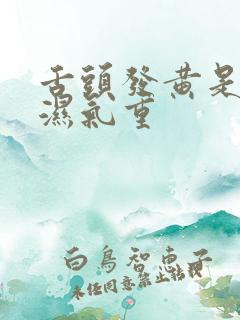 舌頭發黃是
濕氣重
白鳥智恵子
未经同意禁止转载